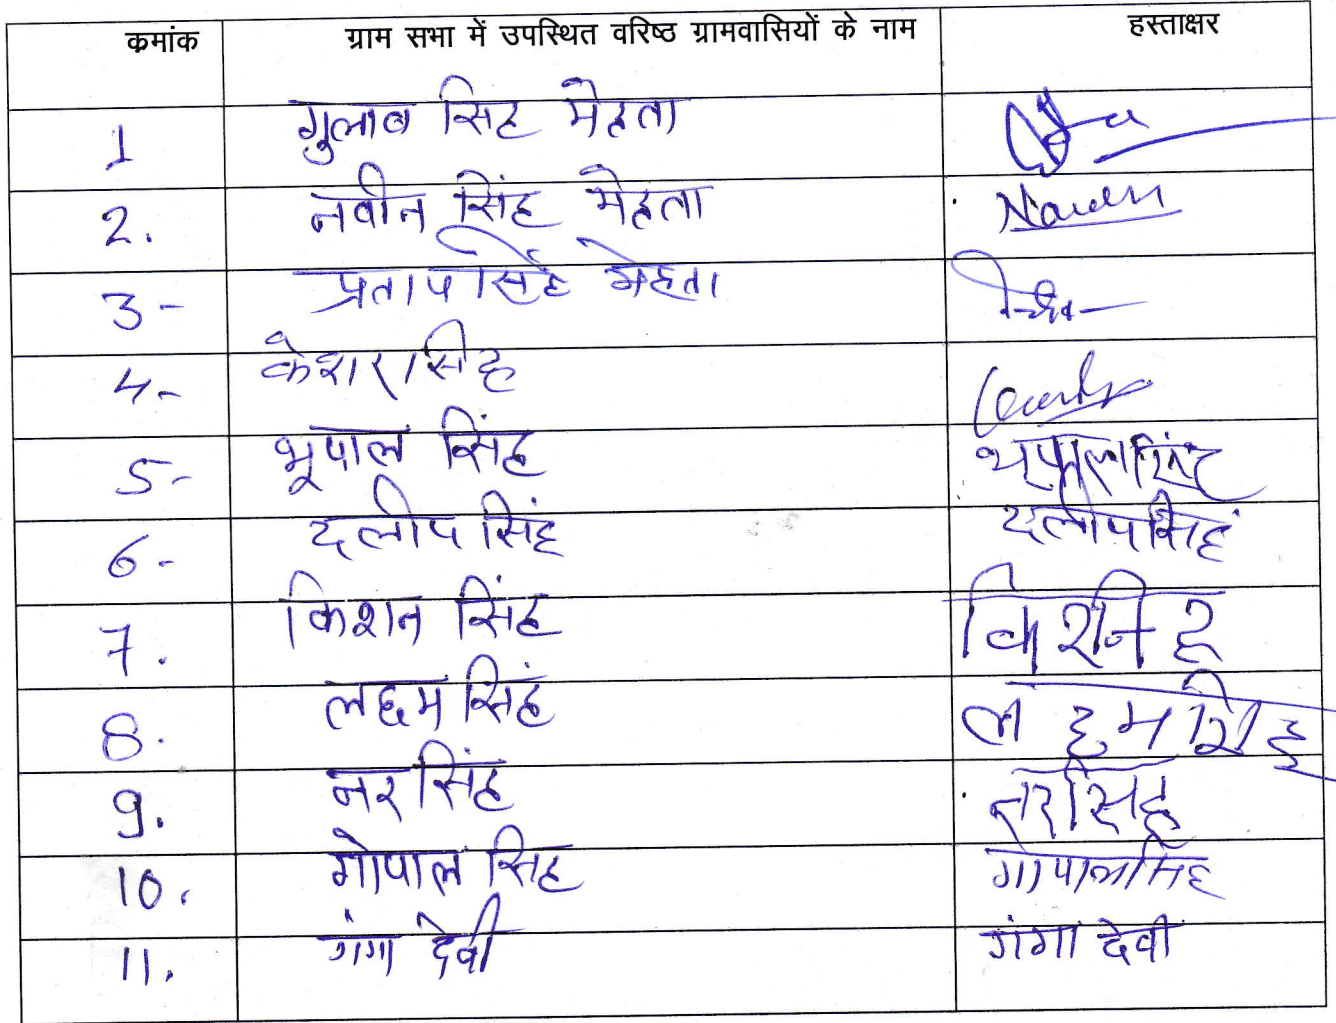 कमांक ग्राम सभा में उपस्थित वरिष्ठ ग्रामवासियों के नाम हस्ताक्षर
1 गुलाब सिंह मेहता
2. नवीन सिंह मेहता Naveen
3- प्रताप सिंह मेहता
4- केशर सिंह
5- भूपाल सिंह भूपाल सिंह
6- दलीप सिंह दलीप सिंह
7. किशन सिंह
8. लछम सिंह
9. नर सिंह नर सिंह
10. गोपाल सिंह गोपाल सिंह
11. गंगा देवी गंगा देवी